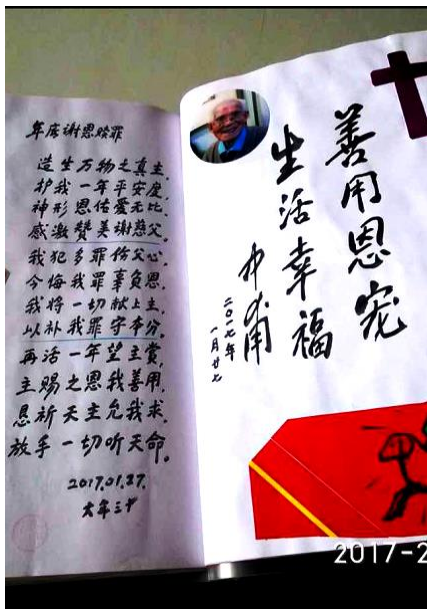 年底谢恩赎罪
造生万物之真主,
护我一年平安度,
神形恩佑爱无比,
感激赞美谢慈父。
我犯多罪伤父心,
今悔我罪辜负恩,
我将一切献上主,
以补我罪守本分。
再活一年望主赏,
主赐之恩我善用,
恳祈天主允我求,
放手一切听天命。
2017.01.27.
大年三十
善用恩宠
生活幸福
二〇一七年
一月廿七
2017-2